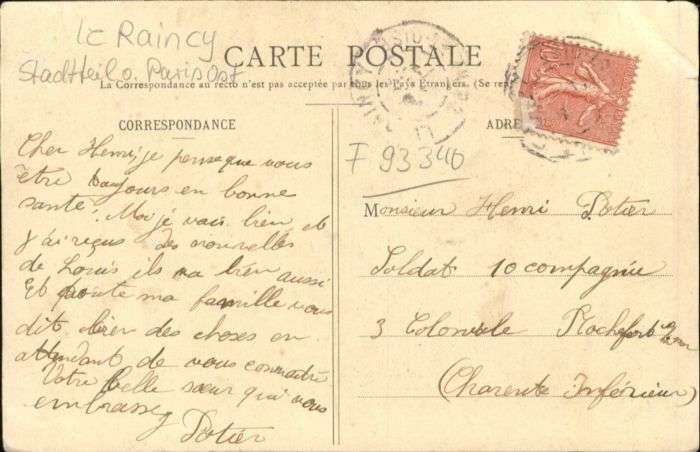 Le Raincy
Stadtteil o. Paris Ost
CARTE POSTALE
La Correspondance au recto n'est pas acceptée par tous les Pays Etrangers. (Se
CORRESPONDANCE
ADRE
F 93340
Cher Henri, je pense que vous
être toujours en bonne
santé. Moi je vais bien et
j'ai reçus des nouvelles
de Louis ils va bien aussi
Et toute ma famille vous
dit bien des choses en
attendant de vous connaitre
Votre belle sœur qui vous
embrasse
Potier
Monsieur Henri Potier
Soldat 10 compagnie
3 Coloniale Rochefort s/mer
(Charente Inférieure)